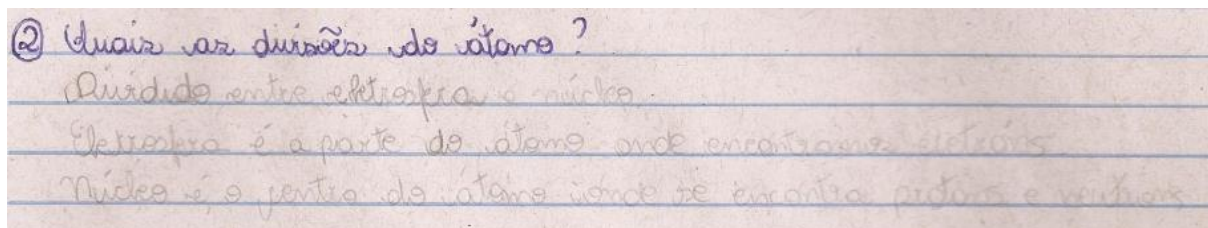 ② Quais as divisões do átomo?
Dividido entre eletrosfera e núcleo.
Eletrosfera é a parte do átomo onde encontramos eletrons
Núcleo é o centro do átomo onde se encontra protons e neutrons